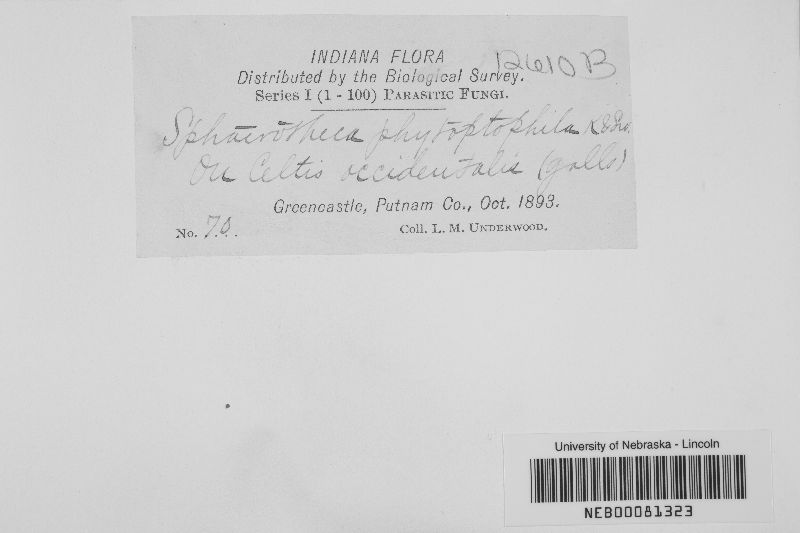 INDIANA FLORA
12610B
Distributed by the Biological Survey.
Series I (1 - 100) PARASITIC FUNGI.
Sphaerotheca phytoptophila K & Sw.
On Celtis occidentalis (galls)
Greencastle, Putnam Co., Oct. 1893.
No. 70. Coll. L. M. UNDERWOOD.
University of Nebraska - Lincoln
NEB00081323